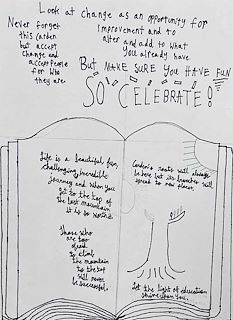 Look at change as an opportunity for
improvement and to
alter and add to what
you already have
Never forget
this garden
but accept
change and
accept people
for who
they are
But MAKE SURE YOU HAVE FUN
SO CELEBRATE!
Life is a beautiful, fun,
challenging, incredible
journey and when you
get to the top of
the last mountain
it is so worth it
Those who
are too
afraid
to climb
the mountain
to the top
will never
be successful.
Garden's roots will always
be here but its branches will
spread to new places.
Let the light of education
shine upon you.